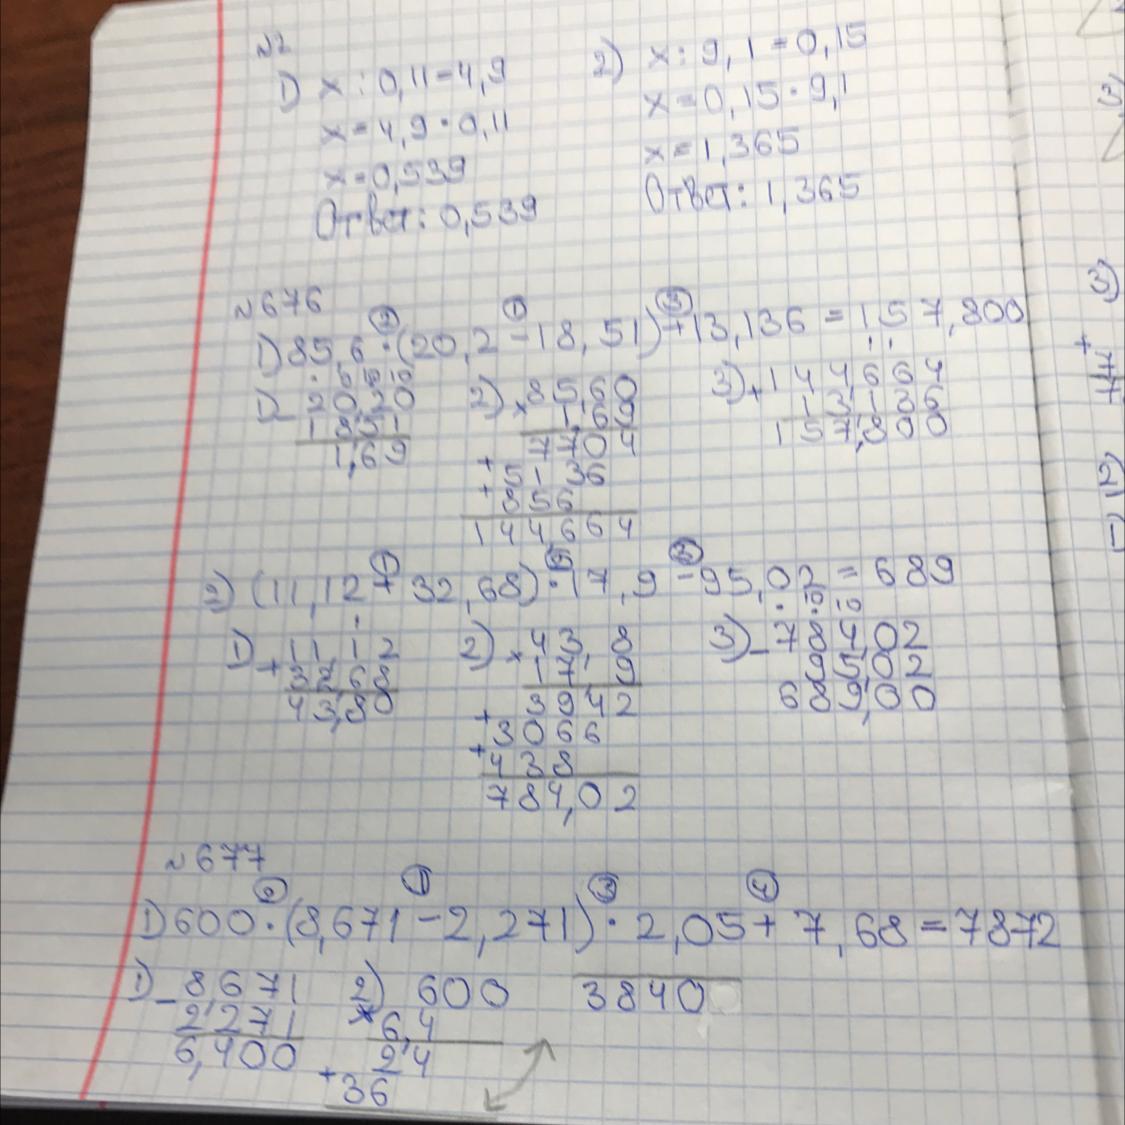 №2
1) x : 0,11 = 4,9
x = 4,9 · 0,11
x = 0,539
Ответ: 0,539
2) x : 9,1 = 0,15
x = 0,15 · 9,1
x = 1,365
Ответ: 1,365
№676
1) 85,6 · (20,2 - 18,51) + 13,136 = 157,800
1) - 20,20
18,51
1,69
2) × 85,60
1,69
7704
+ 5136
+ 856
144,664
3) + 144664
13136
157,800
2) (11,12 + 32,68) · 17,9 - 95,02 = 689
1) + 11,12
32,68
43,80
2) × 43,8
17,9
3942
+ 3066
+ 438
784,02
3) - 784,02
9502
689,00
№677
1) 600 · (8,671 - 2,271) · 2,05 + 7,68 = 7872
1) - 8,671
2,271
6,400
2) 600
× 6,4
24
+ 36
3840
3)
3)
+ 7
7
2)